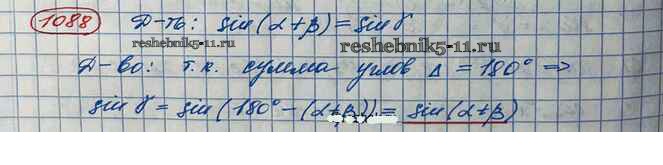 1088 Д-ть: sin(α+β)=sin γ
reshebnik5-11.ru
reshebnik5-11.ru
Д-во: т.к. сумма углов Δ = 180° ⇒
sin γ = sin(180°-(α+β)) = sin(α+β)